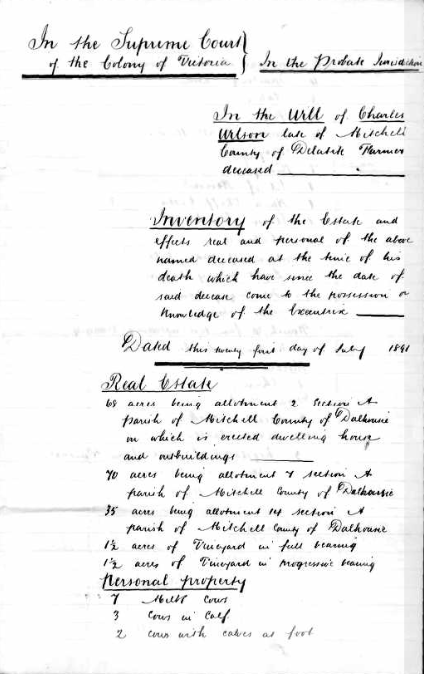 In the Supreme Court
of the Colony of Victoria } In the Probate Jurisdiction
In the Will of Charles
Wilson late of Mitchell
County of Delatite Farmer
deceased
Inventory of the Estate and
effects real and personal of the above
named deceased at the time of his
death which have since the date of
said decease come to the possession or
knowledge of the Executrix
Dated this twenty first day of July 1891
Real Estate
68 acres being allotment 2 Section A
parish of Mitchell County of Dalhousie
on which is erected dwelling house
and outbuildings
70 acres being allotment 7 section A
parish of Mitchell County of Dalhousie
35 acres being allotment 14 section A
parish of Mitchell County of Dalhousie
1½ acres of Vineyard in full bearing
1½ acres of Vineyard in progressive bearing
Personal property
7 Milk Cows
3 Cows in Calf
2 cows with calves at foot